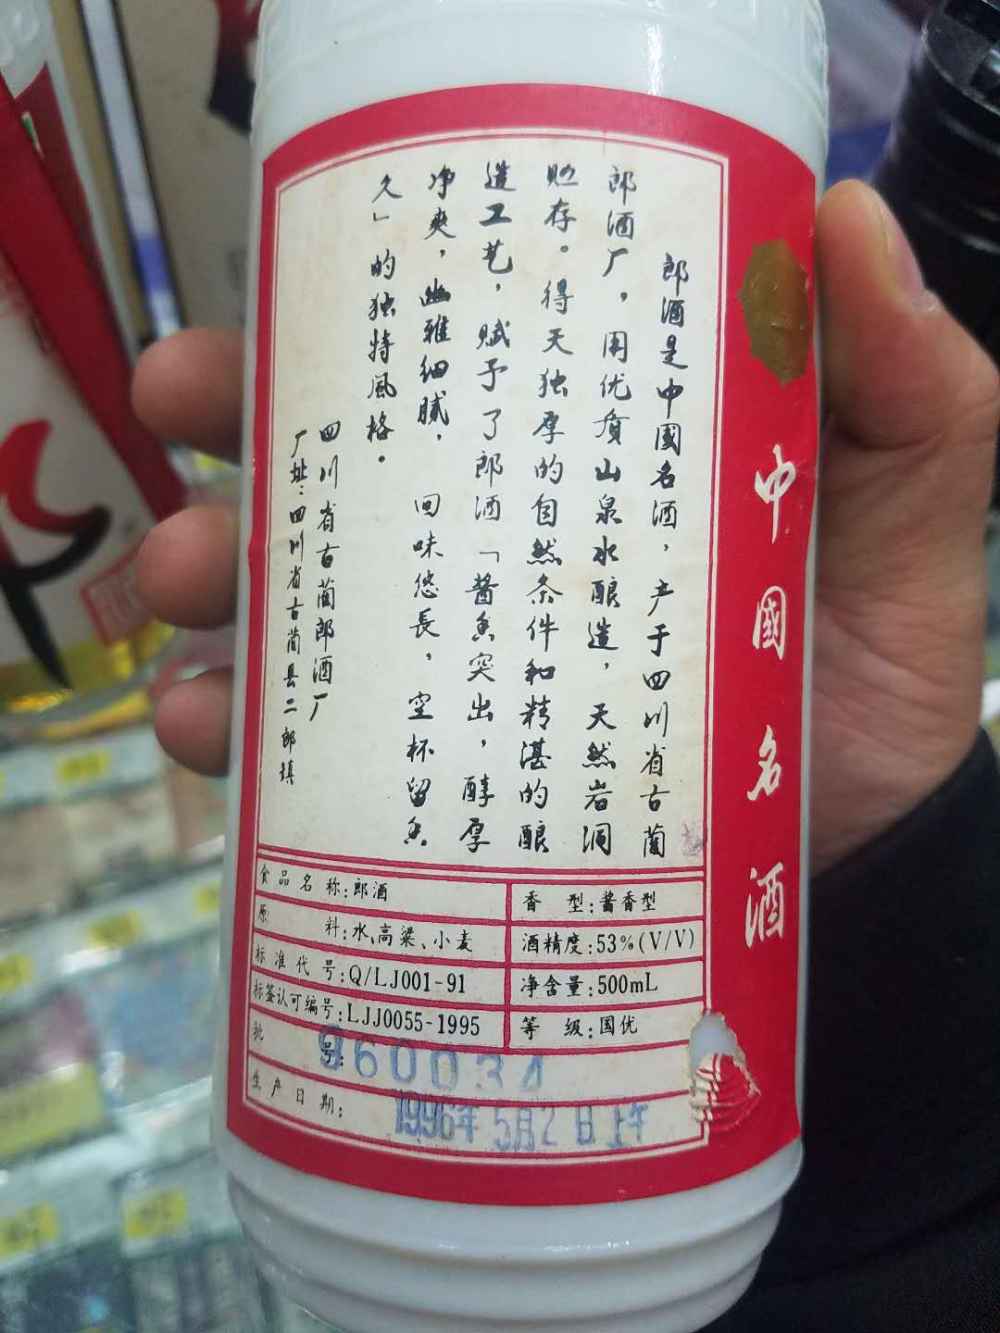 郎酒是中國名酒，产于四川省古蔺
郎酒厂，用优质山泉水酿造，天然岩洞
贮存。得天独厚的自然条件和精湛的酿
造工艺，赋予了郎酒「酱香突出，醇厚
净爽，幽雅细腻，回味悠長，空杯留香
久」的独特風格。
四川省古蔺郎酒厂
厂址：四川省古蔺县二郎镇
中國名酒
食品名称：郎酒
香型：酱香型
原料：水、高粱、小麦
酒精度：53%(V/V)
标准代号：Q/LJ001-91
净含量：500mL
标签认可编号：LJJ0055-1995
等级：国优
批号：960034
生产日期：1996年5月2日上午